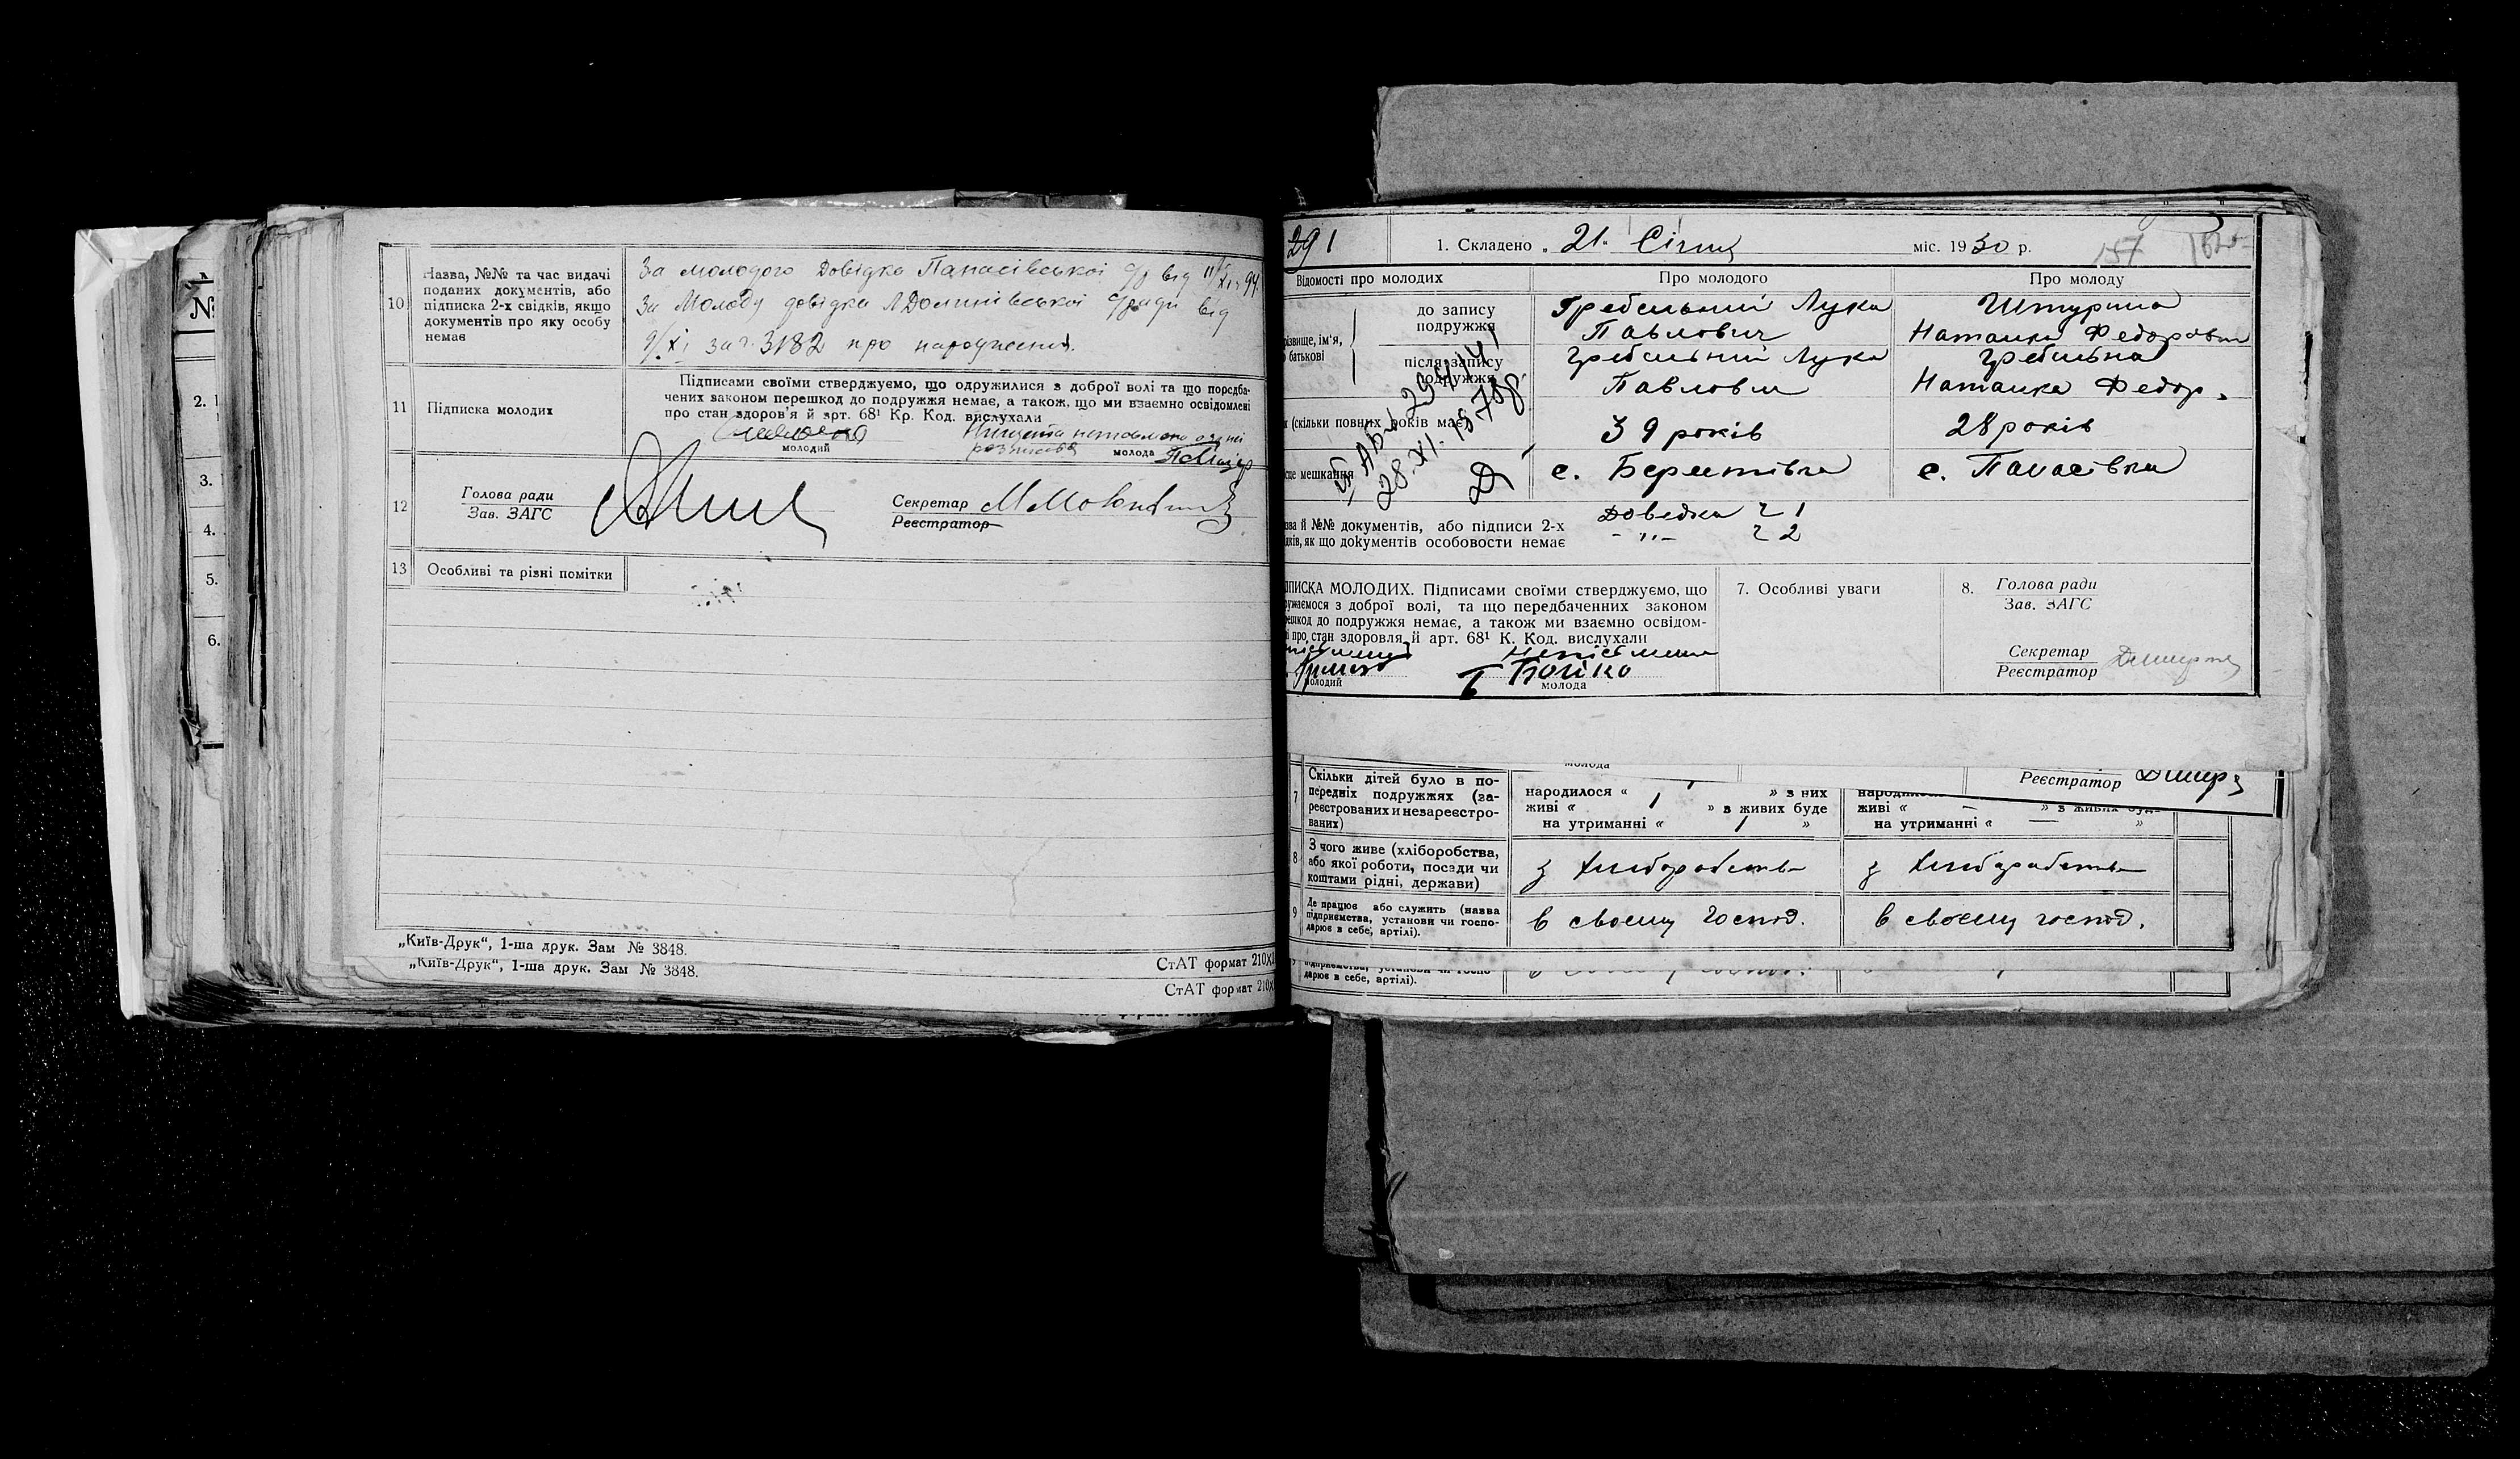 №
2.
3.
4.
5.
6.
10
Назва, №№ та час видачі
поданих документів, або
підписка 2-х свідків, якщо
документів про яку особу
немає
За молодого Довідка Панасівської с/р від 11/XI 94
За Молоду довідка Долинівської с/ради від
9/XI за ч. 3182 про народження.
11
Підписка молодих
Підписами своїми стверджуємо, що одружилися з доброї волі та що передба-
чених законом перешкод до подружжя немає, а також, що ми взаємно освідомлені
про стан здоров'я й арт. 68¹ Кр. Код. вислухали
молодий
молода
12
Голова ради
Зав. ЗАГС
Секретар
Реєстратор
13
Особливі та різні помітки
„Київ-Друк“, 1-ша друк. Зам № 3848.
СтАТ формат 210×
„Київ-Друк“, 1-ша друк. Зам № 3848.
СтАТ формат 210×
291
1. Складено „ 21 “ Січня міс. 1930 р.
157
Відомості про молодих
Про молодого
Про молоду
різвище, ім'я,
батькові
до запису
подружжя
Гребельний Лука
Павлович
Штурина
Наталка Федоровна
після запису
подружжя
Гребельний Лука
Павлович
Гребельна
Наталка Федор.
(скільки повних років має)
39 років
28 років
28.XI.1970р.
сце мешкання
с. Берестівка
с. Панасівка
зва й №№ документів, або підписи 2-х
дків, як що документів особовости немає
Довідка ч 1
- „ - ч 2
ПИСКА МОЛОДИХ. Підписами своїми стверджуємо, що
ружаємося з доброї волі, та що передбаченних законом
решкод до подружжя немає, а також ми взаємно освідом-
і про стан здоровля й арт. 68¹ К. Код. вислухали
неписьменна
Бойко
молодий
молода
7. Особливі уваги
8.
Голова ради
Зав. ЗАГС
Секретар
Реєстратор
молода
Реєстратор
7
Скільки дітей було в по-
передніх подружжях (за-
реєстрованих и незареєстро-
ваних)
народилося « » з них
живі « 1 » з живих буде
на утриманні « 1 »
живі « — » з живих буде
на утриманні « — »
8
З чого живе (хліборобства,
або якої роботи, посади чи
коштами рідні, держави)
з хліборобства
з хліборобства
9
Де працює або служить (назва
підприємства, установи чи госпо-
дарює в себе, артілі).
в своєму господ.
в своєму господ.
підприємства, установи чи госпо-
дарює в себе, артілі).